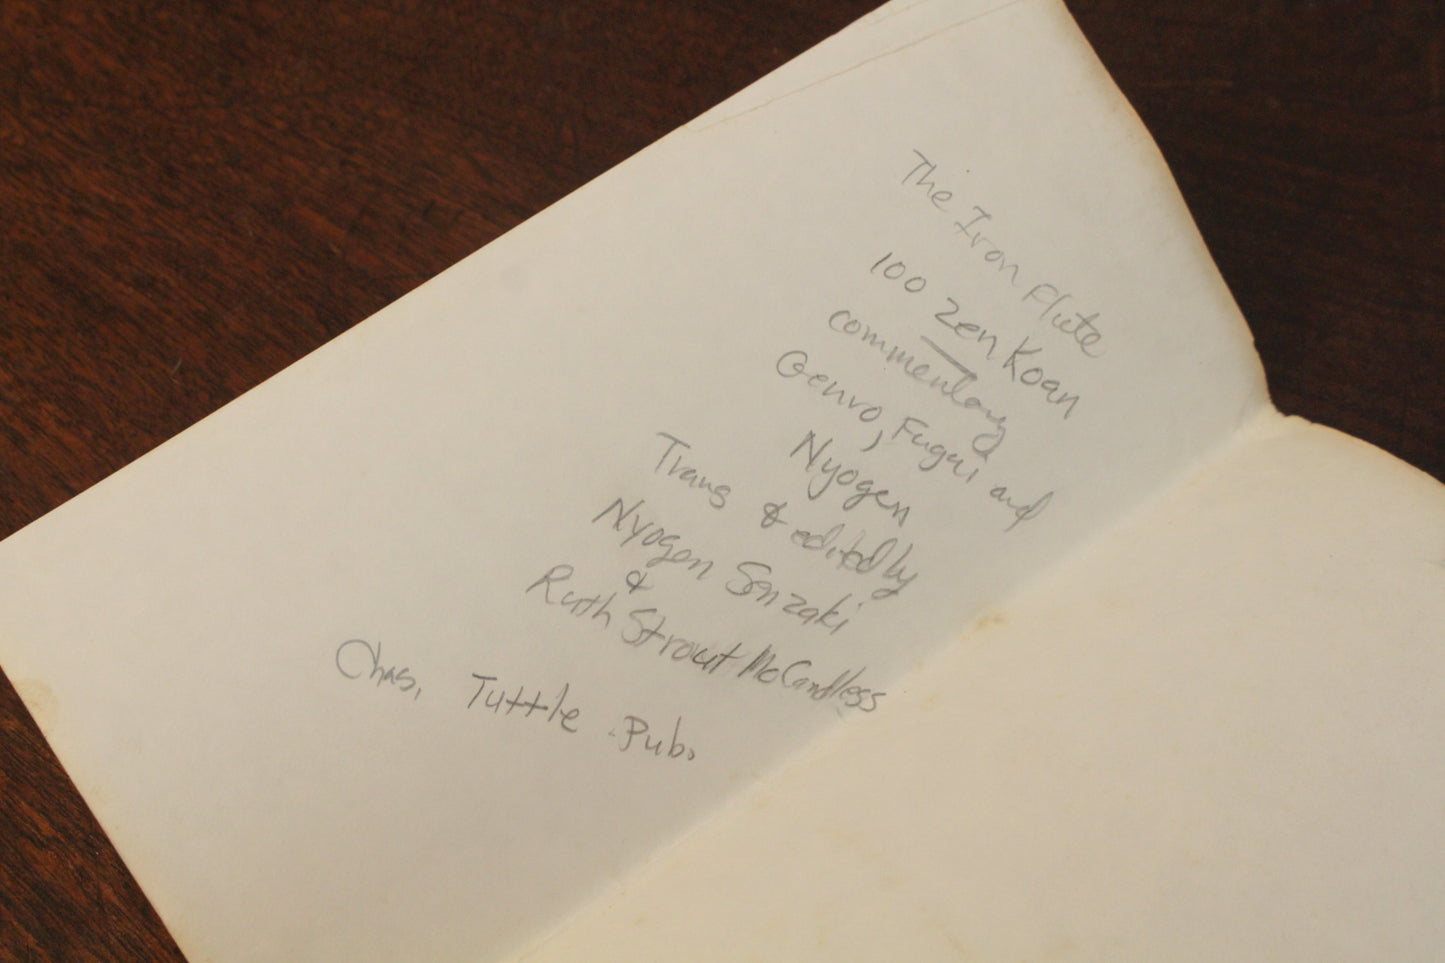 The Iron Flute
100 Zen Koan
commentary
Genro, Fugai and
Nyogen
Trans & edited by
Nyogen Senzaki
&
Ruth Strout McCandless
Chas. Tuttle Pub.